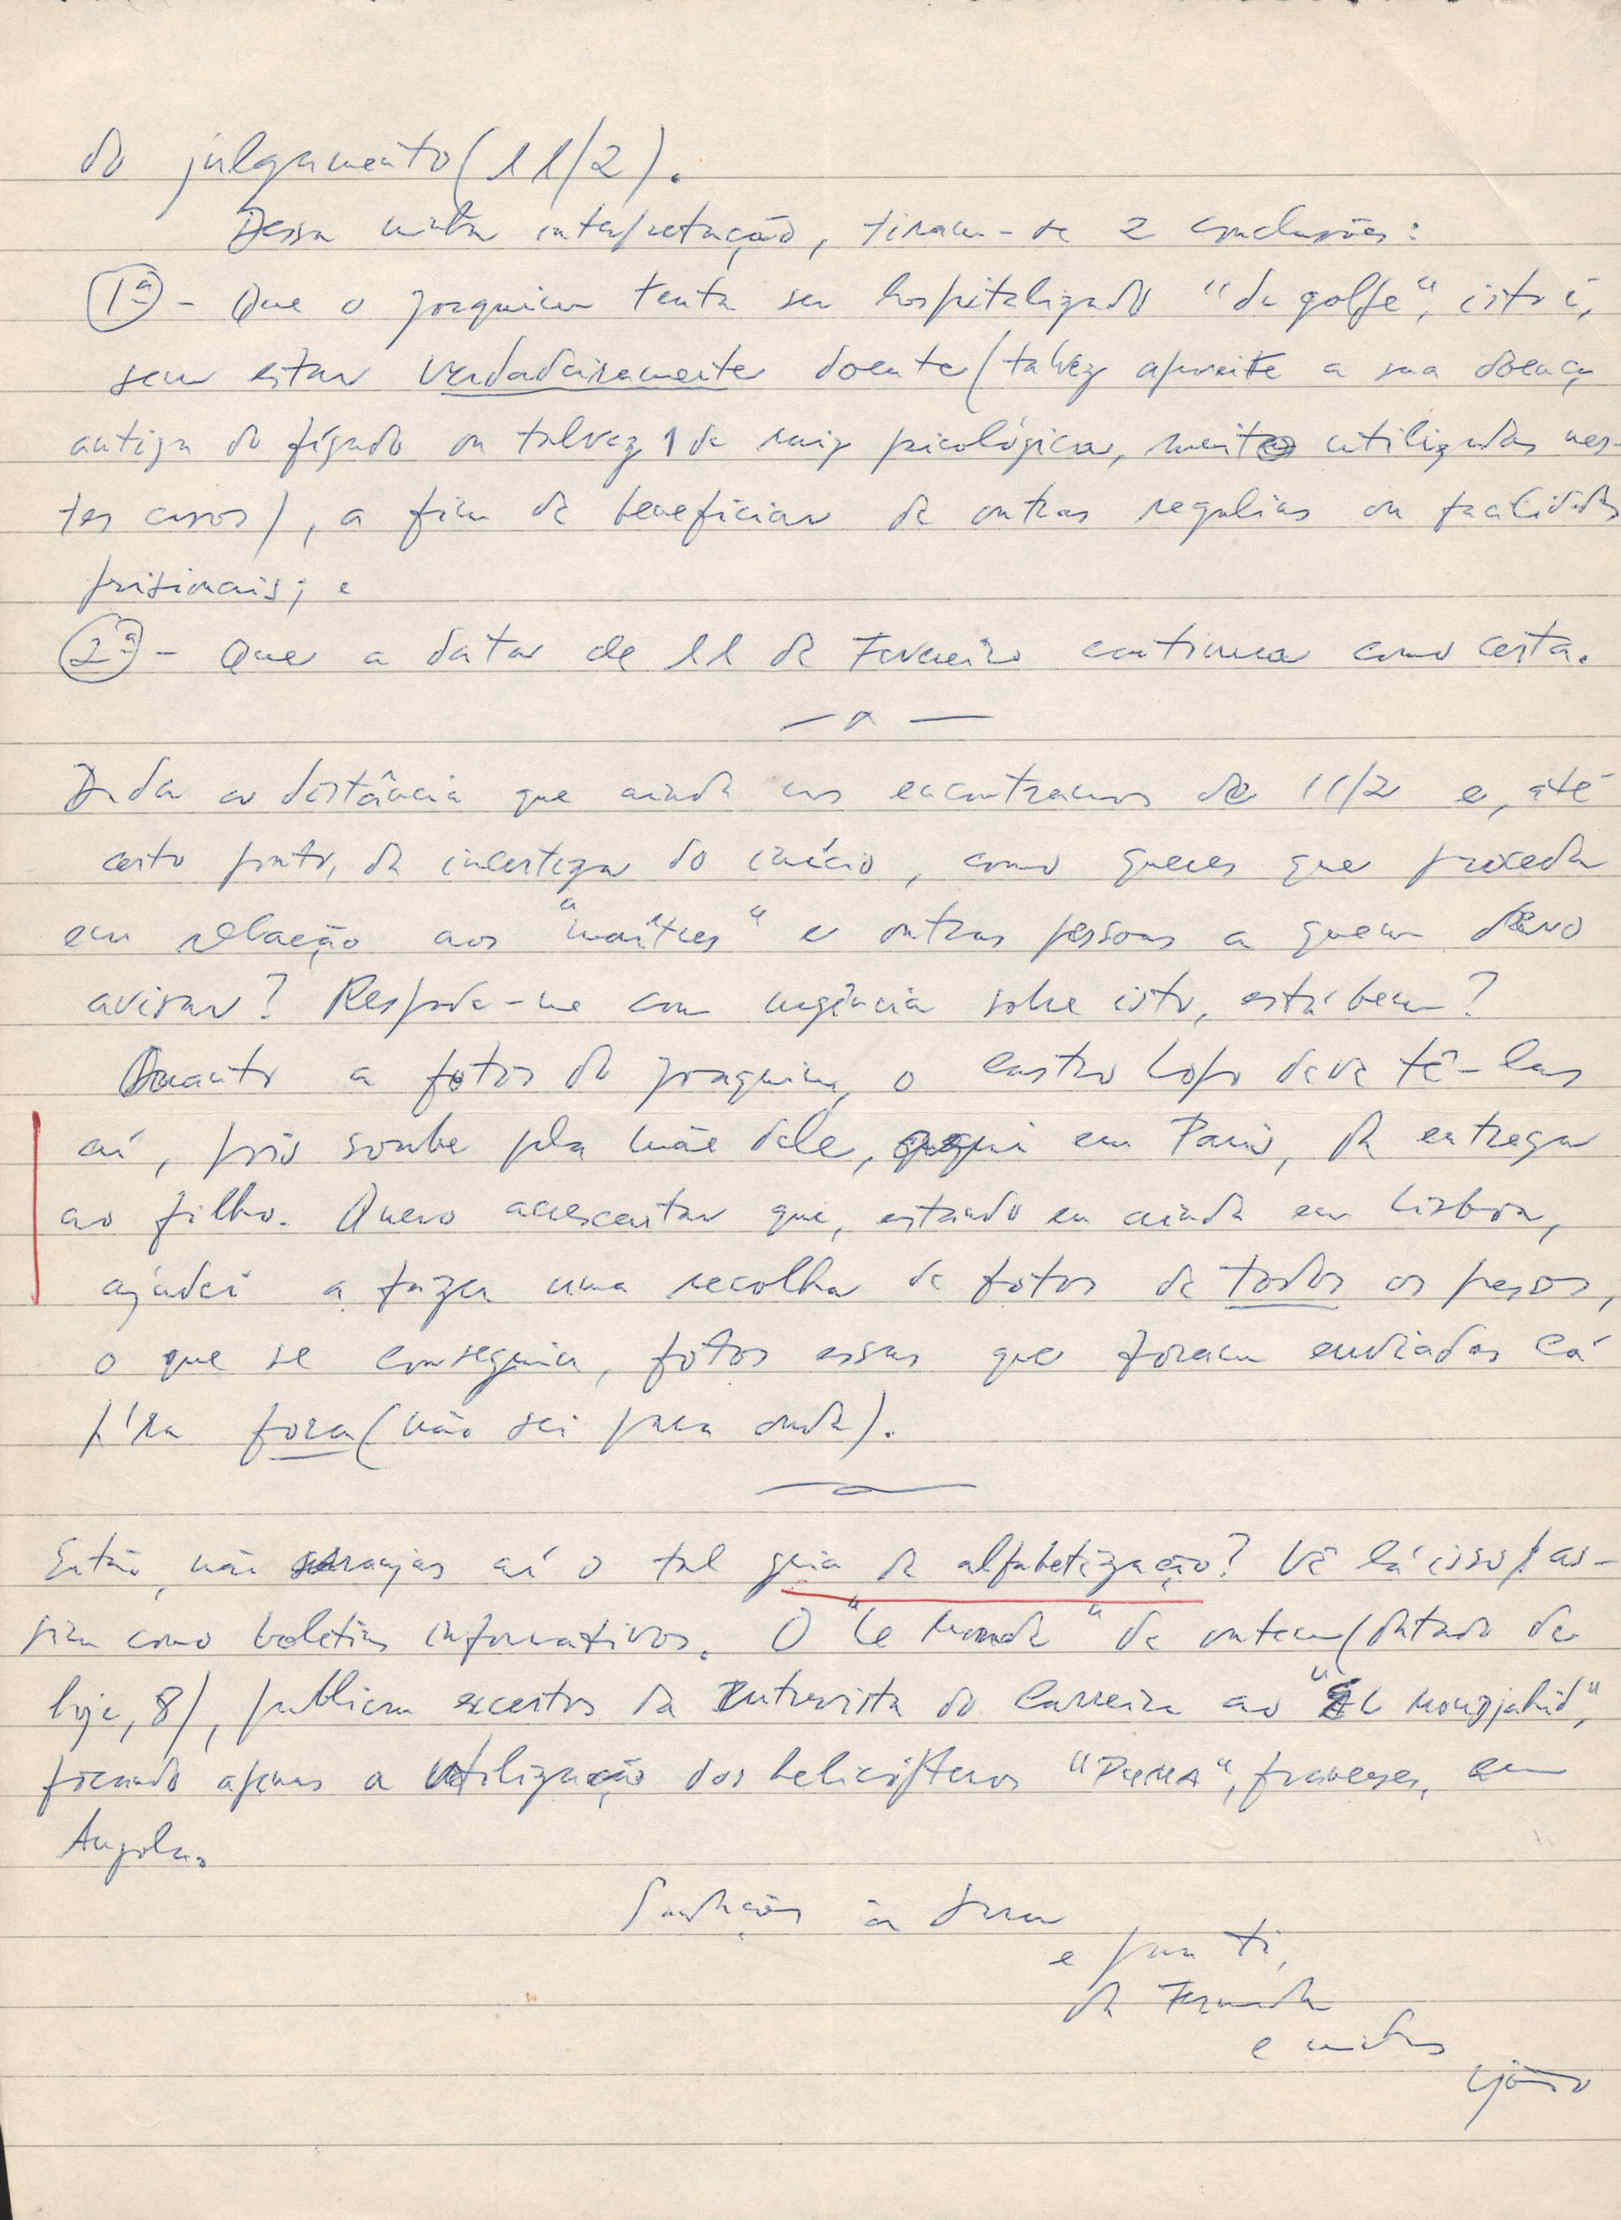 do julgamento (11/2).
Dessa minha interpretação, tiram-se 2 conclusões:
1ª - Que o Joaquim tenta ser hospitalizado "de golpe", isto é,
sem estar verdadeiramente doente (talvez aproveite a sua doença
antiga do fígado ou talvez 1 de raiz psicológica, muito utilizadas nes-
tes casos), a fim de beneficiar de outras regalias ou facilidades
prisionais; e
2ª - Que a data de 11 de Fevereiro continua como certa.
— x —
Dada a distância que ainda nos encontramos de 11/2 e, até
certo ponto, da incerteza do início, como queres que proceda
em relação aos "maîtres" e outras pessoas a quem devo
avisar? Responda-me com urgência sobre isto, está bem?
Quanto a fotos do Joaquim, o Castro Lopo deve tê-las
aí, pois soube pla mãe dele, aqui em Paris, da entrega
ao filho. Quero acrescentar que, estando eu ainda em Lisboa,
ajudei a fazer uma recolha de fotos de todos os presos,
o que se conseguiu, fotos essas que foram enviadas cá
p'ra fora (não sei para onde).
Então, não arranjas aí o tal guia de alfabetização? Vê lá isso, as-
sim como boletins informativos. O "Le Monde" de ontem (datado de
hoje, 8), publica excertos da Entrevista do Carreira ao "El Moudjahid",
focando apenas a utilização dos helicópteros "PUMA", franceses, em
Angola.
Saudações à
e para ti,
da Fernanda
e minhas